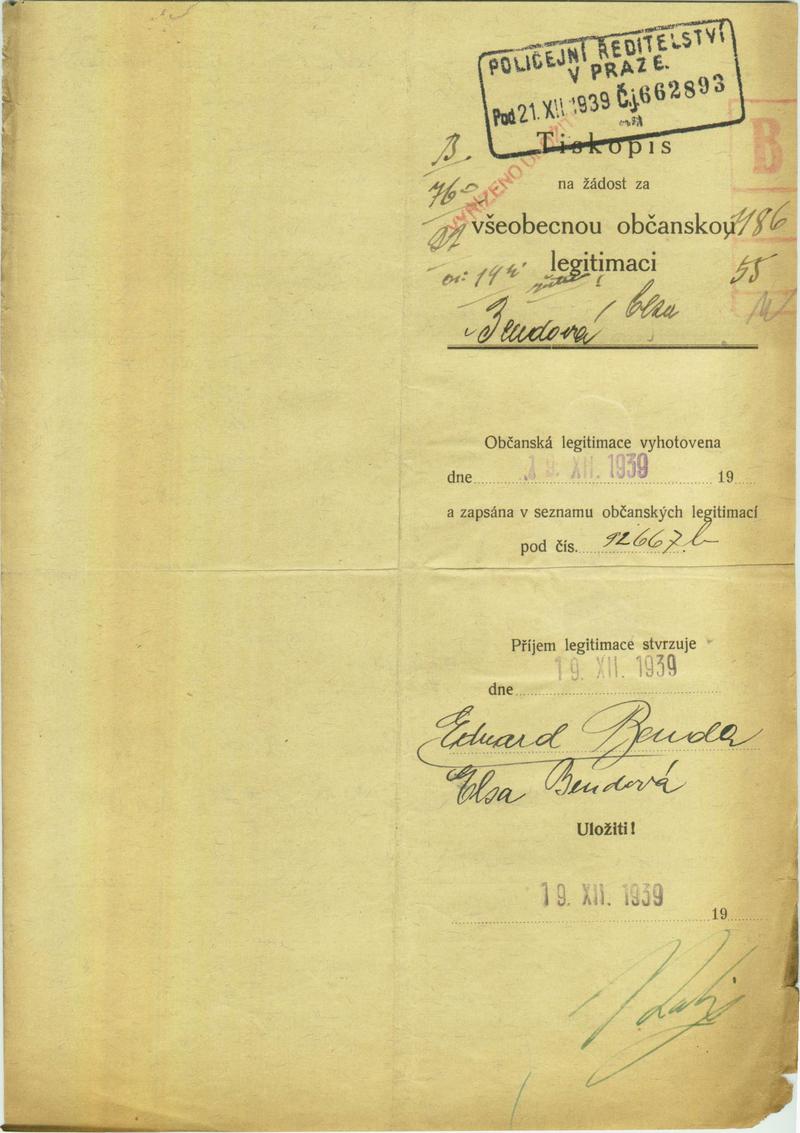 POLICEJNÍ ŘEDITELSTVÍ
V PRAZE.
Pod 21. XII. 1939 Čj 662893
B.
B
Tiskopis
76
na žádost za
VYŘÍZENO
všeobecnou občanskou
186
legitimaci
55
Bendová Elsa
Občanská legitimace vyhotovena
dne 19. XII. 1939 19
a zapsána v seznamu občanských legitimací
pod čís. 92667 b
Příjem legitimace stvrzuje
19. XII. 1939
dne
Eduard Benda
Elsa Bendová
Uložiti!
19. XII. 1939
19